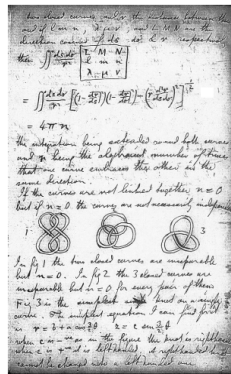 two closed curves and r the distance between them
and l m n λ μ ν and L M N are the
direction cosines of ds dσ & r respectively
then ∬ ds dσ / r² | L M N | l m n | λ μ ν |
= ∬ ds dσ / r² [(1 - dr/ds ²)(1 - dr/dσ ²) - (r d²r/ds dσ)²]^½
= 4 π n
the integration being extended round both curves
and n being the algebraical number of times
that one curve embraces the other in the
same direction.
If the curves are not linked together n = 0
but if n = 0 the curves are not necessarily independent
1
3
In fig 1 the two closed curves are inseparable
but n = 0. In fig 2 the 3 closed curves are
inseparable but n = 0 for every pair of them
Fig 3 is the simplest knot on a single
curve. The simplest equation I can find for it
is r = b + a cos 3/2 θ z = c sin 3/2 θ
when c is - as in the figure the knot is right handed
when c is + it is left handed. A right handed knot
cannot be changed into a left handed one